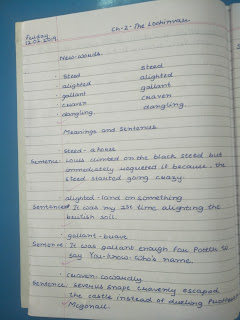 Friday
12.04.2019
Ch-2-The Lochinvar
New-words
· Steed steed
· alighted alighted
· gallant gallant
· craven craven
· dangling dangling
Meanings and Sentences
· Steed- a horse
Sentence: Louis climbed on the black steed but
immediately regreted it because the
steed started going crazy.
· alighted- land on something
Sentence: It was my 1st time alighting the
british soil.
· gallant- brave
Sentence: It was gallant enough for Potter to
say You-know-Who's name.
· craven- cowardly
Sentence: Severus Snape cravenly escaped
the castle instead of dueling Professor
Mcgonall.